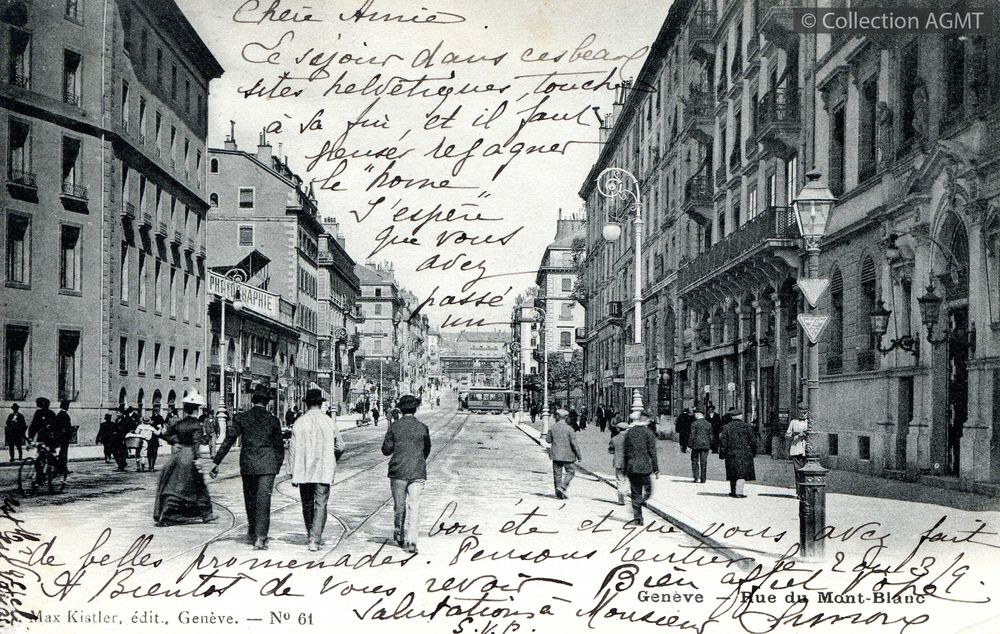 © Collection AGMT
Chère Amie
Le séjour dans ces beaux
sites helvétiques, touche
à sa fin, et il faut
regagner
le "home"
J'espère
que vous
avez
passé
un
PHOTOGRAPHIE
bon été et que vous avez fait
de belles promenades. Pensons rentrer le 2 ou 3/9.
A Bientôt de vous revoir Bien affet Votre
Salutations à Monsieur
S.V.P.
Genève - Rue du Mont-Blanc
Max Kistler, édit., Genève. - No 61